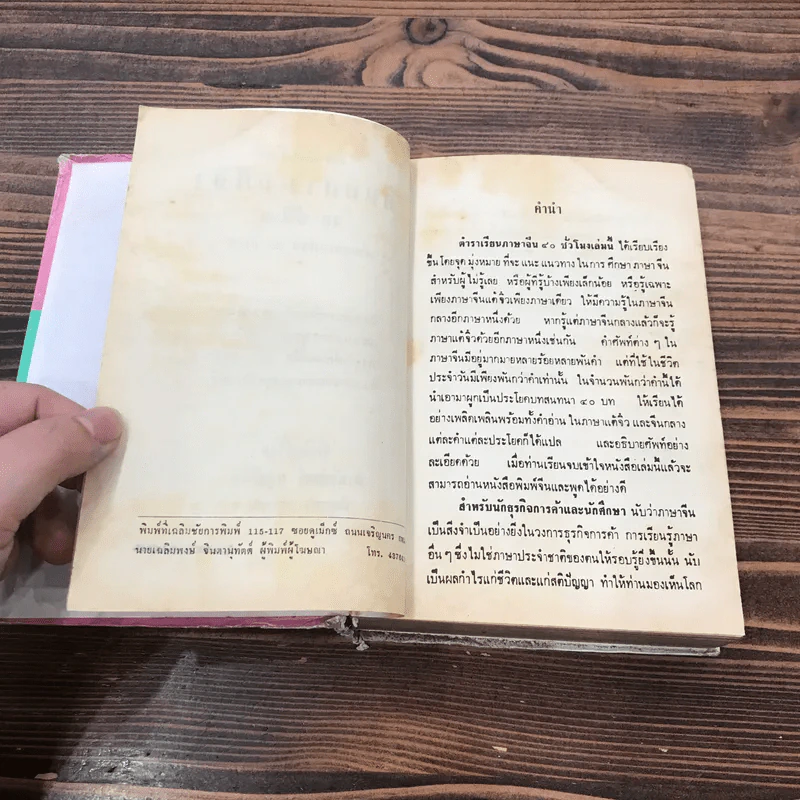 พิมพ์ที่เฉลิมชัยการพิมพ์ 115-117 ซอยดูเม็กซ์ ถนนเจริญนคร
นายเฉลิมพงษ์ จินดานุทัตต์ ผู้พิมพ์ผู้โฆษณา โทร.
คำนำ
ตำราเรียนภาษาจีน ๔๐ ชั่วโมงเล่มนี้ ได้เรียบเรียง
ขึ้นโดยจุดมุ่งหมาย ที่จะแนะแนวทางในการศึกษาภาษาจีน
สำหรับผู้ไม่รู้เลย หรือผู้ที่รู้บ้างเพียงเล็กน้อย หรือรู้เฉพาะ
เพียงภาษาจีนแต้จิ๋วเพียงภาษาเดียว ให้มีความรู้ในภาษาจีน
กลางอีกภาษาหนึ่งด้วย หากรู้แต่ภาษาจีนกลางแล้วก็จะรู้
ภาษาแต้จิ๋วด้วยอีกภาษาหนึ่งเช่นกัน คำศัพท์ต่าง ๆ ใน
ภาษาจีนมีอยู่มากมายหลายร้อยหลายพันคำ แต่ที่ใช้ในชีวิต
ประจำวันมีเพียงพันกว่าคำเท่านั้น ในจำนวนพันกว่าคำนี้ได้
นำเอามาผูกเป็นประโยคบทสนทนา ๔๐ บท ให้เรียนได้
อย่างเพลิดเพลินพร้อมทั้งคำอ่าน ในภาษาแต้จิ๋ว และจีนกลาง
แต่ละคำแต่ละประโยคก็ได้แปล และอธิบายศัพท์อย่าง
ละเอียดด้วย เมื่อท่านเรียนจบเข้าใจหนังสือเล่มนี้แล้วจะ
สามารถอ่านหนังสือพิมพ์จีนและพูดได้อย่างดี
สำหรับนักธุรกิจการค้าและนักศึกษา นับว่าภาษาจีน
เป็นสิ่งจำเป็นอย่างยิ่งในวงการธุรกิจการค้า การเรียนรู้ภาษา
อื่น ๆ ซึ่งไม่ใช่ภาษาประจำชาติของตนให้รอบรู้ยิ่งขึ้นนั้น นับ
เป็นผลกำไรแก่ชีวิตและแก่สติปัญญา ทำให้ท่านมองเห็นโลก